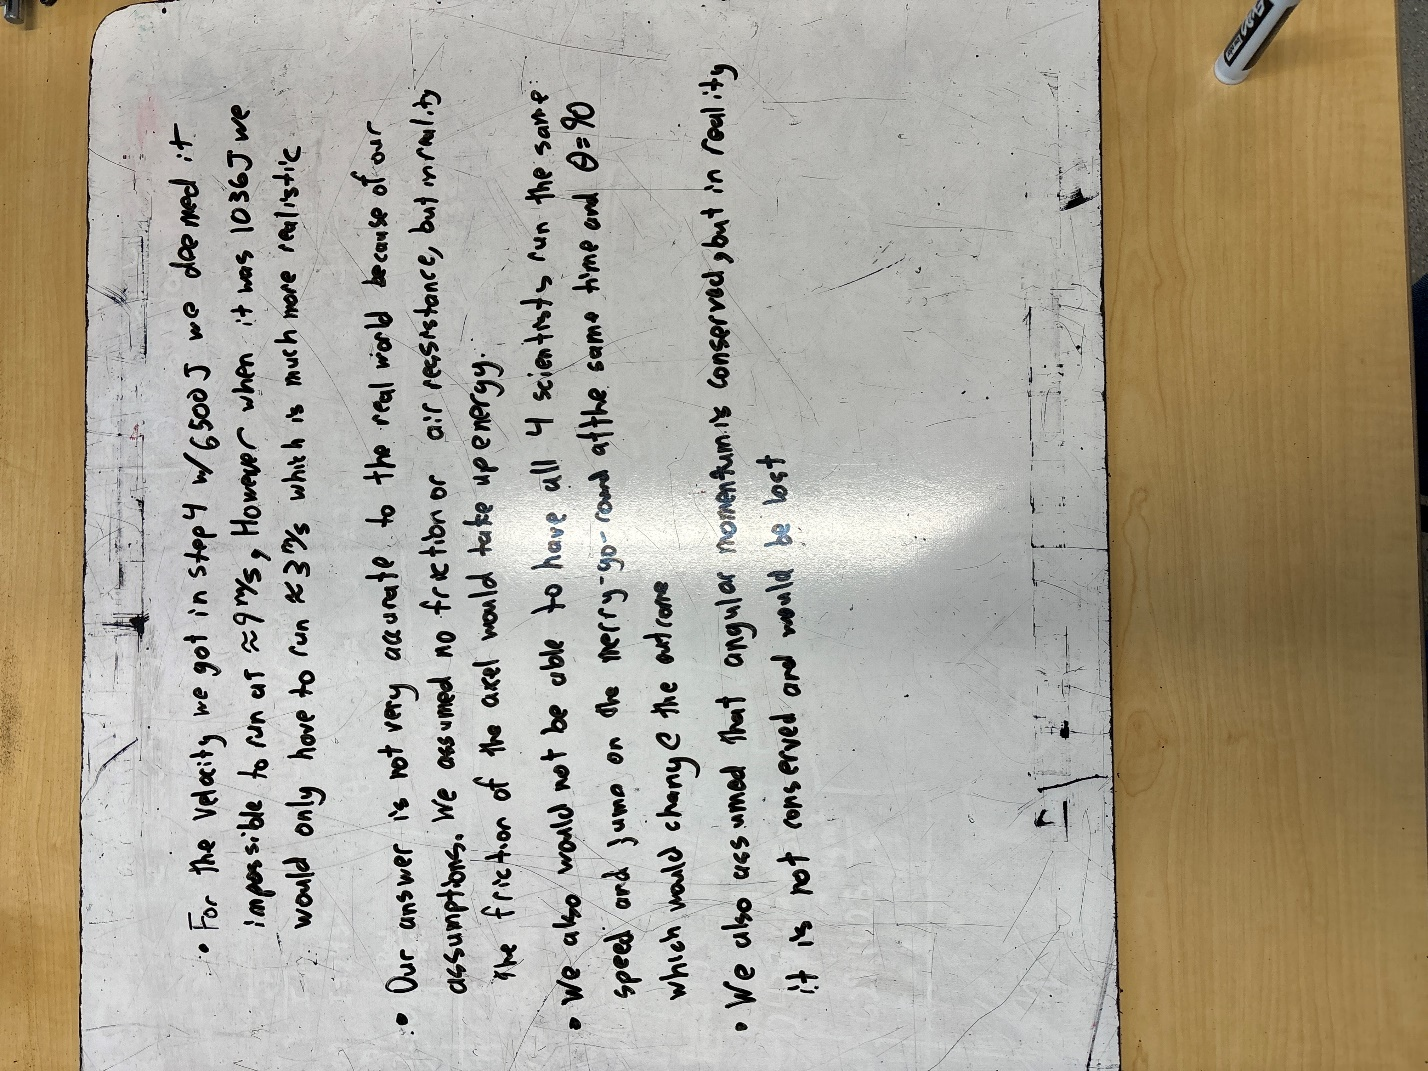 • For the Velocity we got in step 4 w/ 6500J we deemed it
impossible to run at ≈9 m/s, However when it was 1036J we
would only have to run ≈3 m/s which is much more realistic
• Our answer is not very accurate to the real world because of our
assumptions. We assumed no friction or air resistance, but in reality
the friction of the axel would take up energy.
• We also would not be able to have all 4 scientists run the same
speed and jump on the merry-go-round at the same time and θ=90
which would change the outcome
• We also assumed that angular momentum is conserved, but in reality
it is not conserved and would be lost
EXPO